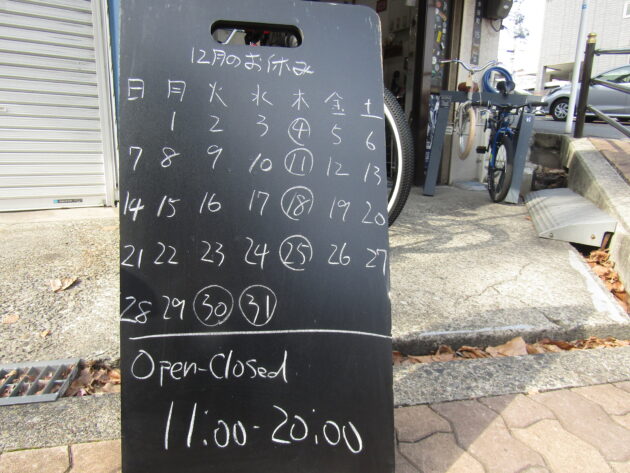 12月のお休み
日 月 火 水 木 金 土
1 2 3 4 5 6
7 8 9 10 11 12 13
14 15 16 17 18 19 20
21 22 23 24 25 26 27
28 29 30 31
Open-Closed
11:00-20:00